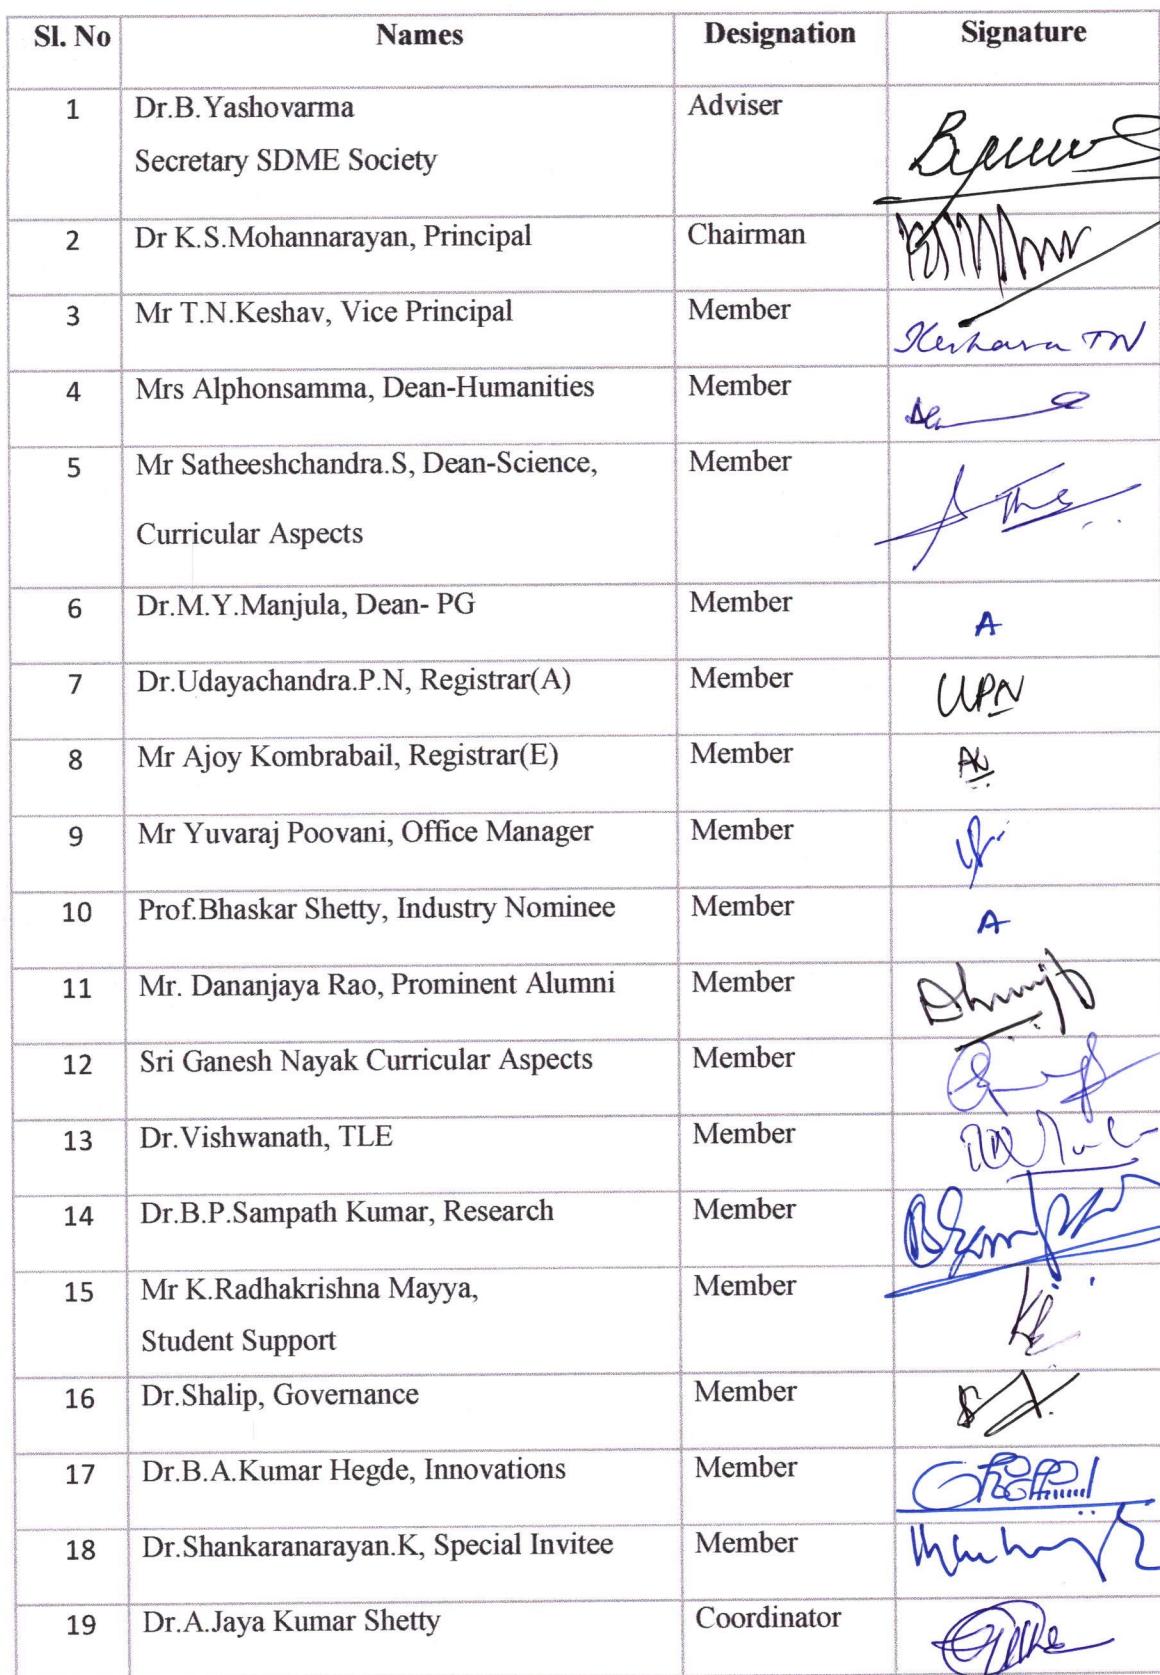 Sl. No Names Designation Signature
1 Dr.B.Yashovarma Adviser
Secretary SDME Society
2 Dr K.S.Mohannarayan, Principal Chairman
3 Mr T.N.Keshav, Vice Principal Member Keshava TN
4 Mrs Alphonsamma, Dean-Humanities Member
5 Mr Satheeshchandra.S, Dean-Science, Member
Curricular Aspects
6 Dr.M.Y.Manjula, Dean- PG Member A
7 Dr.Udayachandra.P.N, Registrar(A) Member UPN
8 Mr Ajoy Kombrabail, Registrar(E) Member
9 Mr Yuvaraj Poovani, Office Manager Member
10 Prof.Bhaskar Shetty, Industry Nominee Member A
11 Mr. Dananjaya Rao, Prominent Alumni Member
12 Sri Ganesh Nayak Curricular Aspects Member
13 Dr.Vishwanath, TLE Member
14 Dr.B.P.Sampath Kumar, Research Member
15 Mr K.Radhakrishna Mayya, Member
Student Support
16 Dr.Shalip, Governance Member
17 Dr.B.A.Kumar Hegde, Innovations Member
18 Dr.Shankaranarayan.K, Special Invitee Member
19 Dr.A.Jaya Kumar Shetty Coordinator